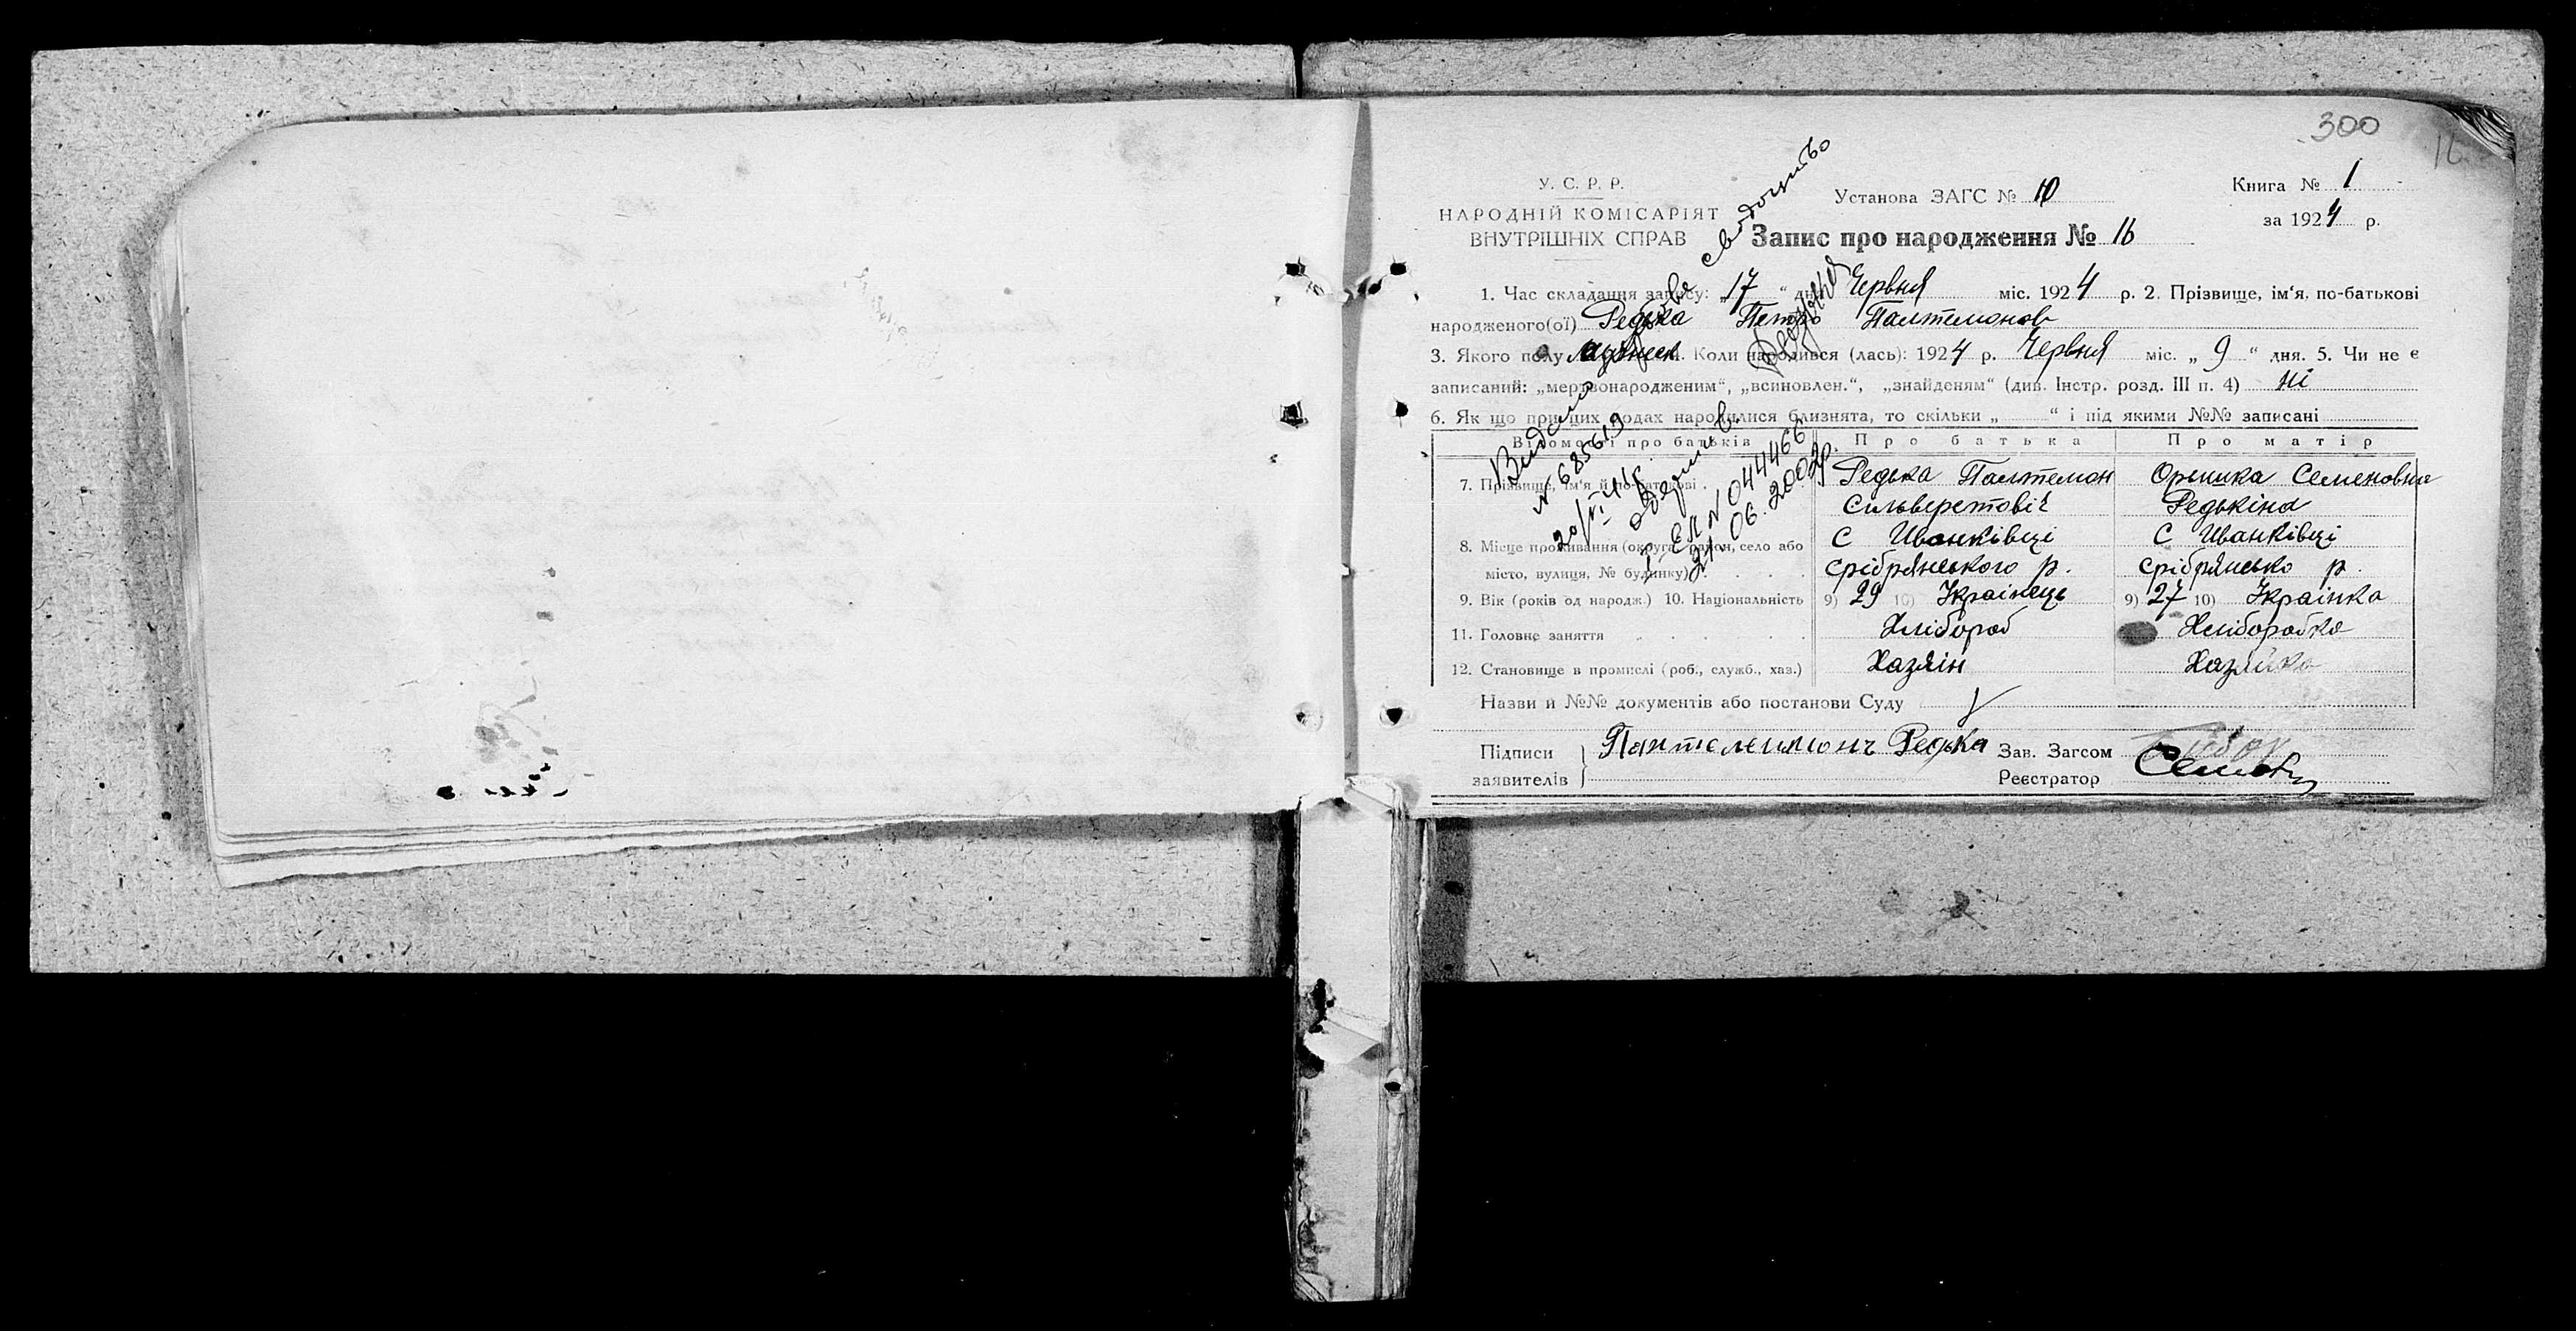 300
16
У. С. Р. Р.
НАРОДНІЙ КОМІСАРІЯТ
ВНУТРІШНІХ СПРАВ
Установа ЗАГС № 10
Книга № 1
за 1924 р.
Запис про народження № 16
1. Час складання запису: „17“ дня Червня міс. 1924 р. 2. Прізвище, ім‘я, по-батькові
народженого(ої) Редька Петро Палтемонов
3. Якого полу мужеск. 4. Коли народився (лась): 1924 р. Червня міс. „9“ дня. 5. Чи не є
записаний: „мертвонародженим“, „всиновлен.“, „знайденям“ (див. Інстр. розд. III п. 4) ні
6. Як що при цих родах народилися близнята, то скільки „ “ і під якими №№ записані
Відомості про батьків Про батька Про матір
7. Прізвище, ім‘я й по-батькові Редька Палтемон Орышка Семеновна
Сильверстовіч Редькіна
8. Місце проживання (округа, район, село або С Иванківці С Иванківці
місто, вулиця, № будинку) срібрянського р. срібрянсько р.
9. Вік (років од народж.) 10. Національність 9) 29 10) Украінець 9) 27 10) Украінка
11. Головне заняття Хлібороб Хліборобка
12. Становище в промислі (роб., служб., хаз.) Хазяін Хазяйка
Назви й №№ документів або постанови Суду
Підписи заявителів Пантелеимонъ Редька
Зав. Загсом
Реєстратор
Видано свидоцтво
№ 685619
20/VI 41 р.
I-ЕЛ № 044466
21.06.2002р.